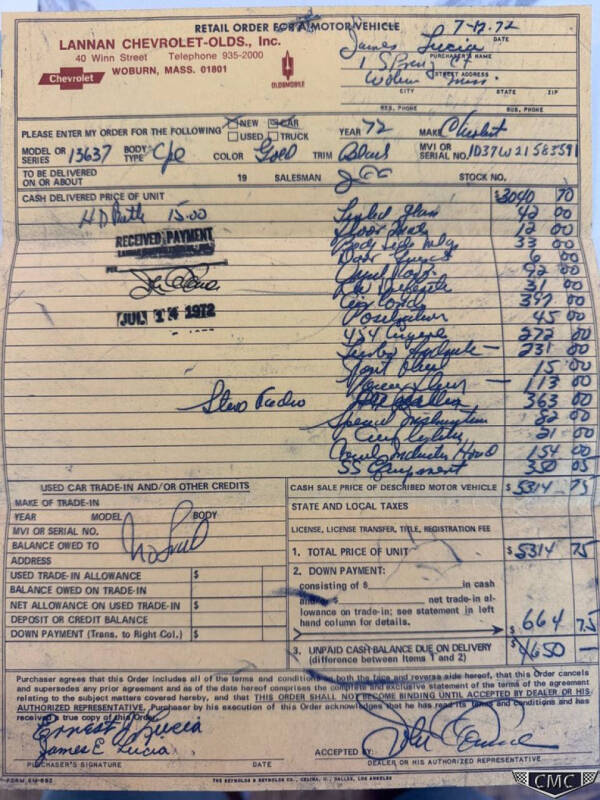 RETAIL ORDER FOR A MOTOR VEHICLE
7-12-72
DATE
LANNAN CHEVROLET-OLDS., Inc.
James Lucia
PURCHASER'S NAME
40 Winn Street Telephone 935-2000
1 Spring Ct
STREET ADDRESS
WOBURN, MASS. 01801
Woburn Mass.
Chevrolet
OLDSMOBILE
CITY STATE ZIP
RES. PHONE BUS. PHONE
PLEASE ENTER MY ORDER FOR THE FOLLOWING NEW CAR YEAR 72 MAKE Chevrolet
USED TRUCK
MODEL OR SERIES 13637 BODY TYPE Cpe COLOR Gold TRIM Black MVI OR SERIAL NO. 1D37W2L583591
TO BE DELIVERED ON OR ABOUT 19 SALESMAN STOCK NO.
CASH DELIVERED PRICE OF UNIT $3040 70
HD Batt 15.00 Tinted Glass 42 00
RECEIVED PAYMENT Floor Mats 12 00
LANNAN Body Side Mldg 33 00
Door Guards 6 00
PER Vinyl Roof 92 00
Rr Defogger 31 00
JUL 14 1972 Air Cond 397 00
Positraction 45 00
454 Engine 272 00
Turbo Hydro — 231 00
15 00
113 00
Stereo Radio 363 00
Special Instrumentation 82 00
21 00
Cowl Induction Hood 154 00
SS Equipment 350 05
USED CAR TRADE-IN AND/OR OTHER CREDITS
CASH SALE PRICE OF DESCRIBED MOTOR VEHICLE $5314 75
MAKE OF TRADE-IN
STATE AND LOCAL TAXES
YEAR MODEL BODY
MVI OR SERIAL NO.
LICENSE, LICENSE TRANSFER, TITLE, REGISTRATION FEE
No Trade
BALANCE OWED TO
1. TOTAL PRICE OF UNIT $5314 75
ADDRESS
2. DOWN PAYMENT:
USED TRADE-IN ALLOWANCE $
consisting of $ in cash
BALANCE OWED ON TRADE-IN
and $ net trade-in al-
NET ALLOWANCE ON USED TRADE-IN $
lowance on trade-in; see statement in left
DEPOSIT OR CREDIT BALANCE
hand column for details.
$ 664 75
DOWN PAYMENT (Trans. to Right Col.) $
3. UNPAID CASH BALANCE DUE ON DELIVERY
(difference between Items 1 and 2)
$4650 —
Purchaser agrees that this Order includes all of the terms and conditions on both the face and reverse side hereof, that this Order cancels
and supersedes any prior agreement and as of the date hereof comprises the complete and exclusive statement of the terms of the agreement
relating to the subject matters covered hereby, and that THIS ORDER SHALL NOT BECOME BINDING UNTIL ACCEPTED BY DEALER OR HIS
AUTHORIZED REPRESENTATIVE. Purchaser by his execution of this Order acknowledges that he has read its terms and conditions and has
received a true copy of this Order.
Ernest J Lucia
James E. Lucia
ACCEPTED BY:
PURCHASER'S SIGNATURE DATE
DEALER OR HIS AUTHORIZED REPRESENTATIVE
THE REYNOLDS & REYNOLDS CO., CELINA, O., DALLAS, LOS ANGELES
CMC